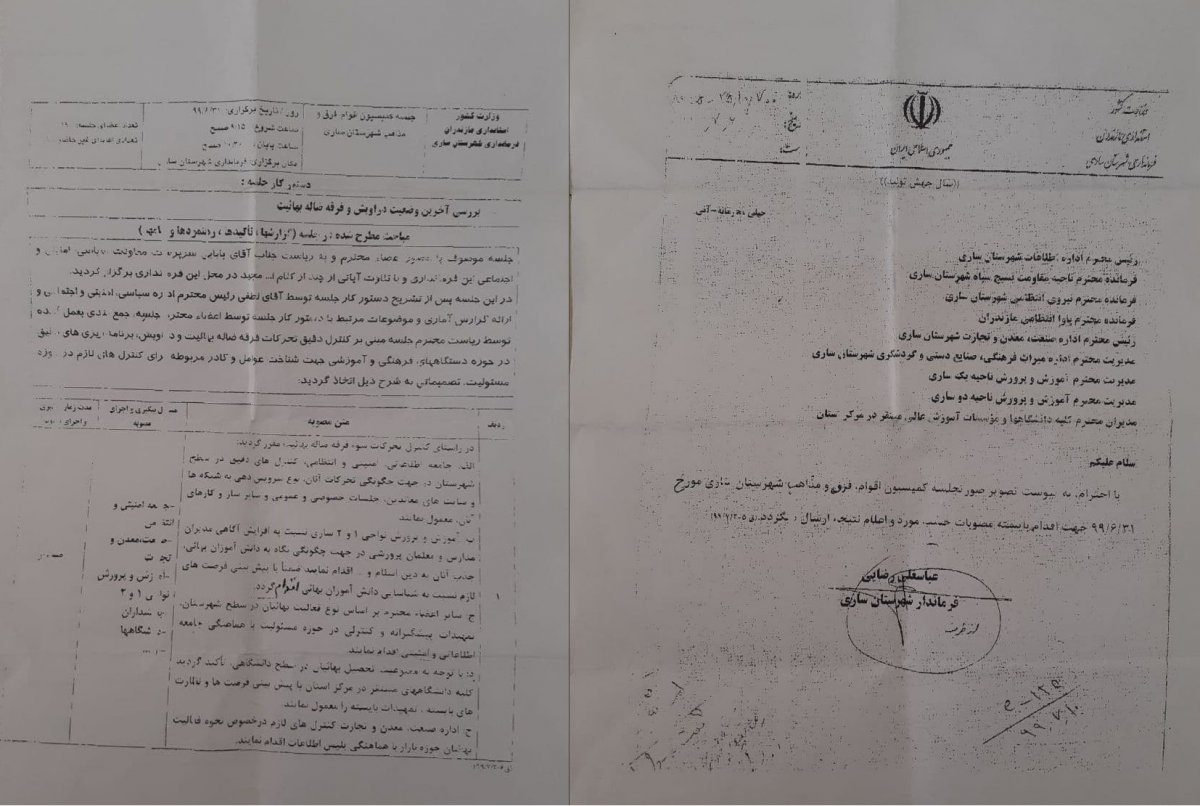 جمهوری اسلامی ایران
استانداری مازندران
فرمانداری شهرستان ساری
((سال جهش تولید))
خیلی محرمانه-آنی
رئیس محترم اداره اطلاعات شهرستان ساری
فرمانده محترم ناحیه مقاومت بسیج سپاه شهرستان ساری
فرمانده محترم نیروی انتظامی شهرستان ساری
فرمانده محترم پاوا انتظامی مازندران
رئیس محترم اداره صنعت، معدن و تجارت شهرستان ساری
مدیریت محترم اداره میراث فرهنگی، صنایع دستی و گردشگری شهرستان ساری
مدیریت محترم آموزش و پرورش ناحیه یک ساری
مدیریت محترم آموزش و پرورش ناحیه دو ساری
مدیران محترم کلیه دانشگاهها و مؤسسات آموزش عالی مستقر در مرکز استان
سلام علیکم
با احترام، به پیوست تصویر صورتجلسه کمیسیون اقوام، فرق و مذاهب شهرستان ساری مورخ
۹۹/۶/۳۱ جهت اقدام بایسته مصوبات حسب مورد و اعلام نتیجه، ارسال می گردد.
عباسعلی رضایی
فرماندار شهرستان ساری
از طرف
وزارت کشور
استانداری مازندران
فرمانداری شهرستان ساری
جلسه کمیسیون اقوام فرق و
مذاهب شهرستان ساری
روز / تاریخ برگزاری: ۹۹/۶/۳۱
ساعت شروع: ۹:۱۵ صبح
ساعت پایان: ۱۰:۳۰ صبح
مکان برگزاری: فرمانداری شهرستان
تعداد اعضاء جلسه:
تعداد اعضای غیر حاضر:
دستور کار جلسه :
بررسی آخرین وضعیت دراویش و فرقه ضاله بهائیت
مباحث مطرح شده در جلسه (گزارشها، تأکیدها، رهنمودها و
جلسه موصوف با حضور اعضاء محترم و به ریاست جناب آقای بابایی سرپرست معاونت سیاسی امنیتی و
اجتماعی این فرمانداری و با تلاوت آیاتی از چند از کلام ا... مجید در محل این فرمانداری برگزار گردید.
در این جلسه پس از تشریح دستور کار جلسه توسط آقای لطفی رئیس محترم اداره سیاسی، امنیتی و اجتماعی و
ارائه گزارش آماری و موضوعات مرتبط با دستور کار جلسه توسط اعضاء محترم جلسه، جمع بندی بعمل آمده
توسط ریاست محترم جلسه مبنی بر کنترل دقیق تحرکات فرقه ضاله بهائیت و دراویش، برنامه ریزی های دقیق
در حوزه دستگاههای فرهنگی و آموزشی جهت شناخت عوامل و کادر مربوطه برای کنترل های لازم در حوزه
مسئولیت، تصمیماتی به شرح ذیل اتخاذ گردید:
ردیف
متن مصوبه
مسئول پیگیری و اجرای
مصوبه
در راستای کنترل تحرکات سوء فرقه ضاله بهائیت، مقرر گردید:
الف: جامعه اطلاعاتی، امنیتی و انتظامی، کنترل های دقیق در سطح
شهرستان در جهت چگونگی تحرکات آنان، نوع سرویس دهی به شبکه ها
و سایت های معاندین، جلسات خصوصی و عمومی و سایر ساز و کارهای
آنان، معمول نمایند.
ب: آموزش و پرورش نواحی ۱ و ۲ ساری نسبت به افزایش آگاهی مدیران
مدارس و معلمان پرورشی در جهت چگونگی نگاه به دانش آموزان بهائی،
جذب آنان به دین اسلام و ... اقدام نمایند ضمناً با پیش بینی فرصت های
لازم نسبت به شناسایی دانش آموزان بهائی اقدام گردد.
۱
ج: سایر اعضاء محترم بر اساس نوع فعالیت بهائیان در سطح شهرستان،
تمهیدات پیشگیرانه و کنترلی در حوزه مسئولیت با هماهنگی جامعه
اطلاعاتی و امنیتی اقدام نمایند.
د: با توجه به ممنوعیت تحصیل بهائیان در سطح دانشگاهی، تأکید گردید
کلیه دانشگاههای مستقر در مرکز استان با پیش بینی فرصت ها و نظارت
های بایسته ، تمهیدات بایسته را معمول نمایند.
ح: اداره صنعت، معدن و تجارت کنترل های لازم درخصوص نحوه فعالیت
بهائیان حوزه بازار با هماهنگی پلیس اطلاعات اقدام نمایند.
-جامعه امنیتی و
-صنعت،معدن و
-آموزش و پرورش
نواحی ۱ و ۲
-دانشگاهها